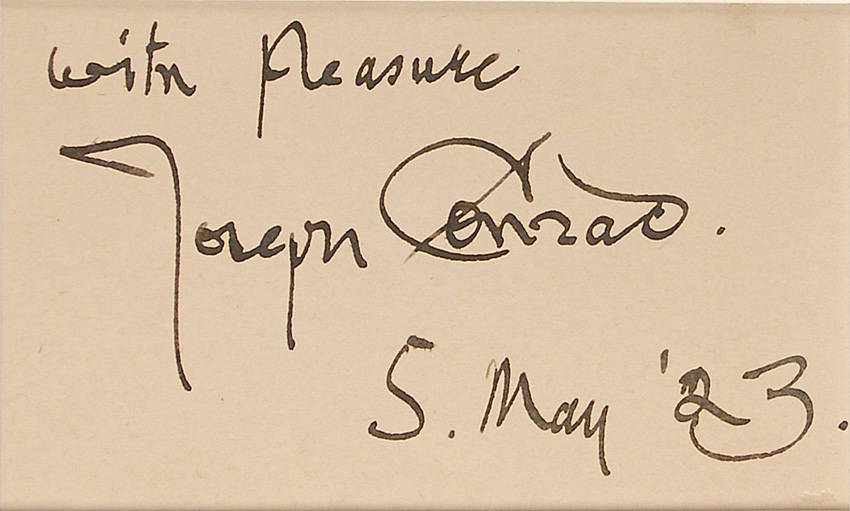 with pleasure
Joseph Conrad.
5. May '23.